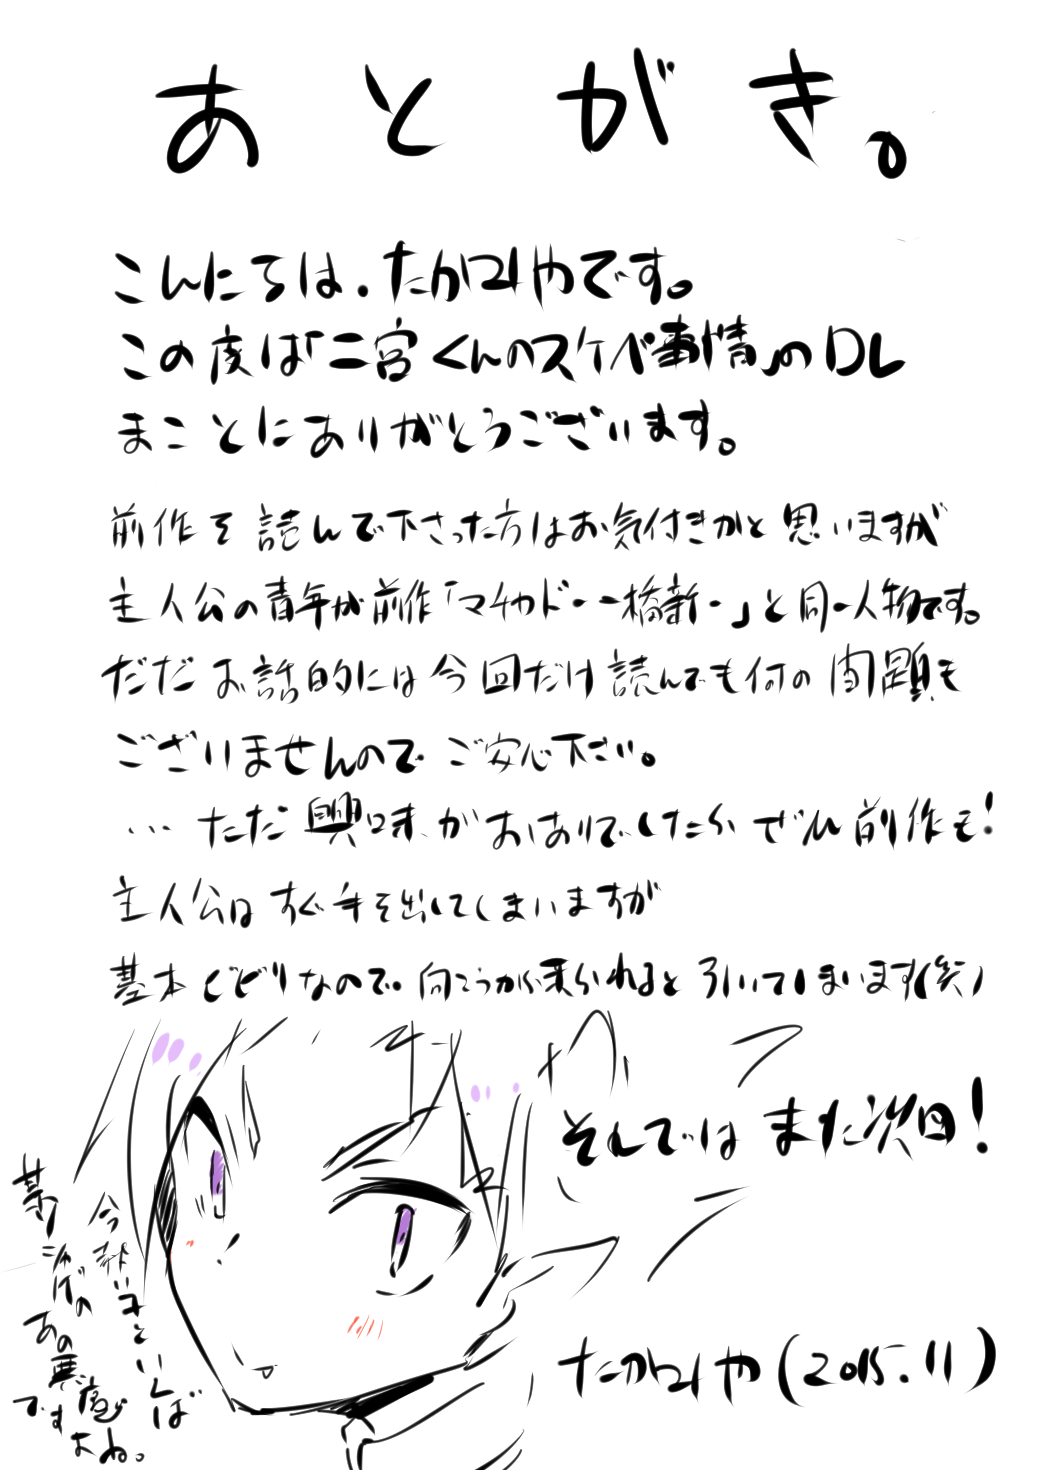 あとがき。
こんにちは.たかみやです。
この度は「二宮くんのスケベ事情」のDL
まことにありがとうございます。
前作を読んで下さった方はお気付きかと思いますが
主人公の青年が前作「マチカドー一橋新一」と同一人物です。
だだお話的には今回だけ読んでも何の問題も
ございませんのでご安心下さい。
...ただ興味がおありでしたらぜひ前作も!
主人公はすぐ手を出してしまいますが
基本ビビリなので。向こうから来られると引いてしまいます(笑)
それではまた次回!
今熱い子といえば
某ジャゲの
あの悪魔
ですよね。
たかみや(2015.11)